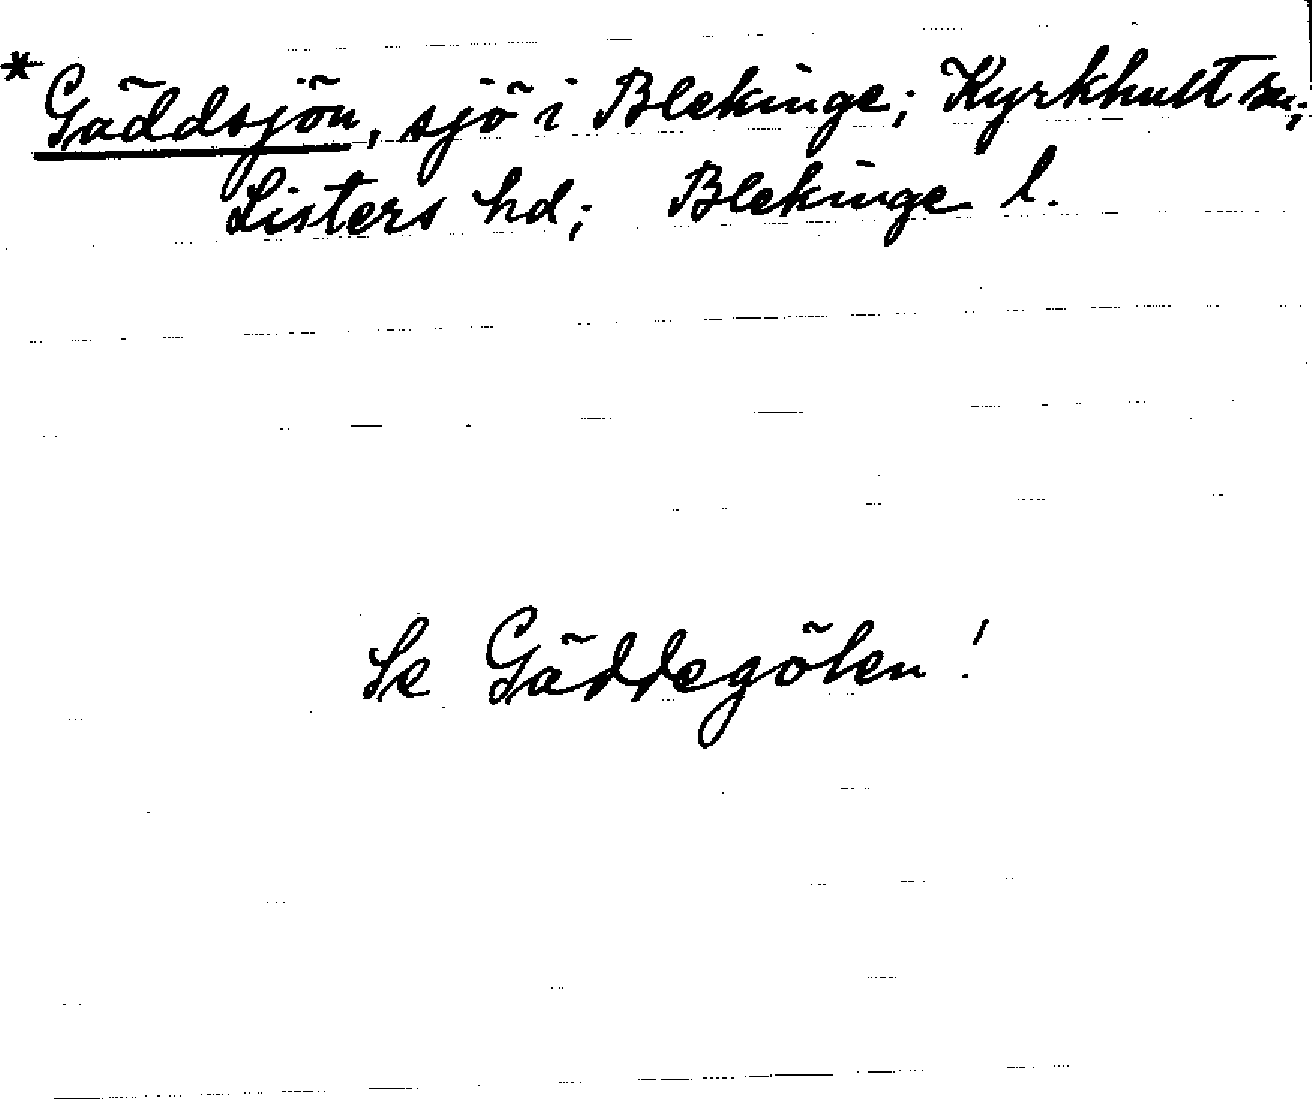 * Gäddsjön, sjö i Blekinge; Kyrkhult sn;
Listers hd; Blekinge l.
Se Gäddegölen!